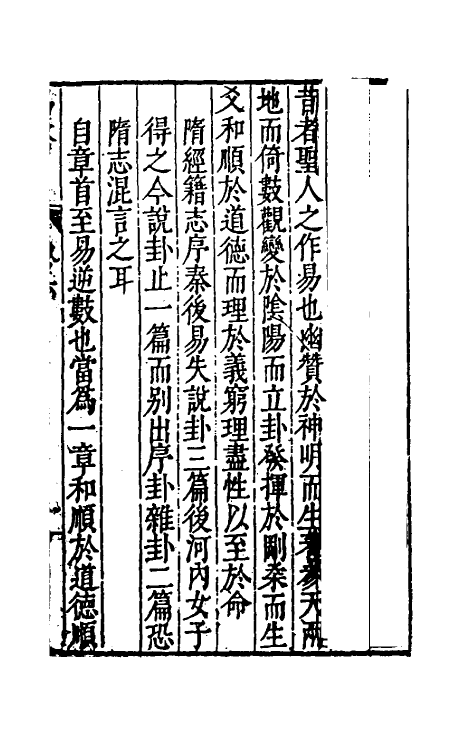 昔者聖人之作易也幽贊於神明而生蓍參天兩
地而倚數觀變於陰陽而立卦發揮於剛柔而生
爻和順於道德而理於義窮理盡性以至於命
隋經籍志序秦後易失說卦三篇後河內女子
得之今說卦止一篇而别出序卦雜卦二篇恐
隋志混言之耳
自章首至易逆數也當爲一章和順於道德順